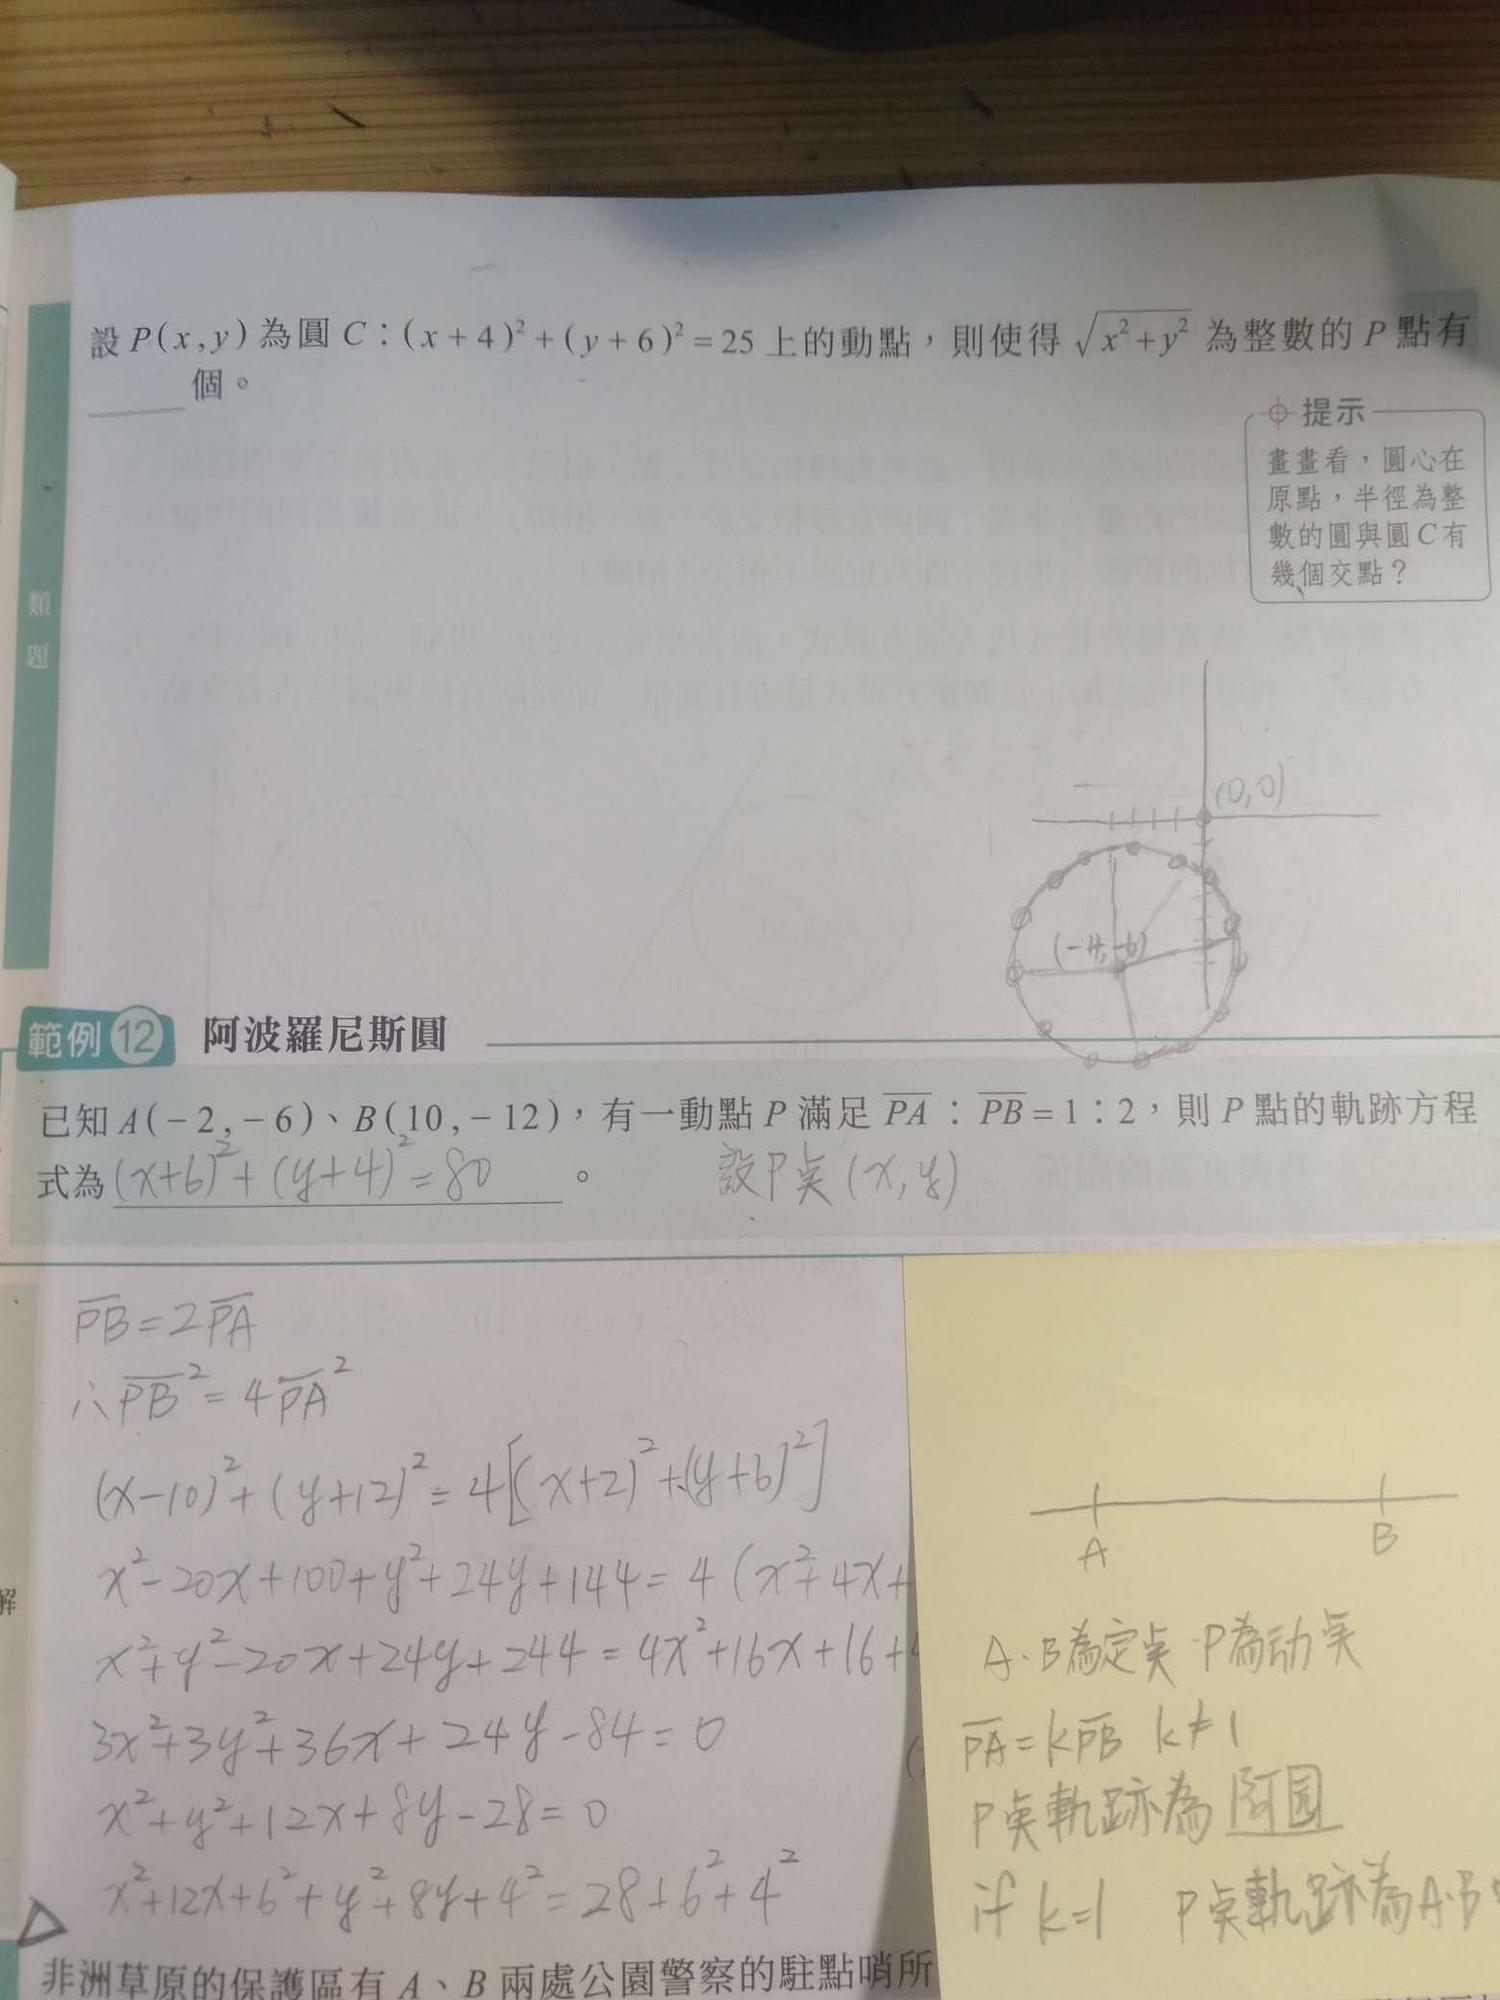 設 P(x,y) 為圓 C：(x+4)²+(y+6)²=25 上的動點，則使得 √(x²+y²) 為整數的 P 點有
____個。
提示
畫畫看，圓心在
原點，半徑為整
數的圓與圓 C 有
幾個交點？
類題
(0,0)
(-4,-6)
範例 12 阿波羅尼斯圓
已知 A(−2,−6)、B(10,−12)，有一動點 P 滿足 P̅A̅：P̅B̅=1：2，則 P 點的軌跡方程
式為 (x+6)²+(y+4)²=80 。 設P奌(x,y)
P̅B̅=2P̅A̅
∴P̅B̅²=4P̅A̅²
(x-10)²+(y+12)²=4[(x+2)²+(y+6)²]
x²-20x+100+y²+24y+144=4(x²+4x+
x²+y²-20x+24y+244=4x²+16x+16+
3x²+3y²+36x+24y-84=0
x²+y²+12x+8y-28=0
x²+12x+6²+y²+8y+4²=28+6²+4²
解
A B
A.B為定奌 P為动奌
P̅A̅=kP̅B̅ k≠1
P奌軌跡為阿圆
if k=1 P奌軌跡為A.B
非洲草原的保護區有 A、B 兩處公園警察的駐點哨所